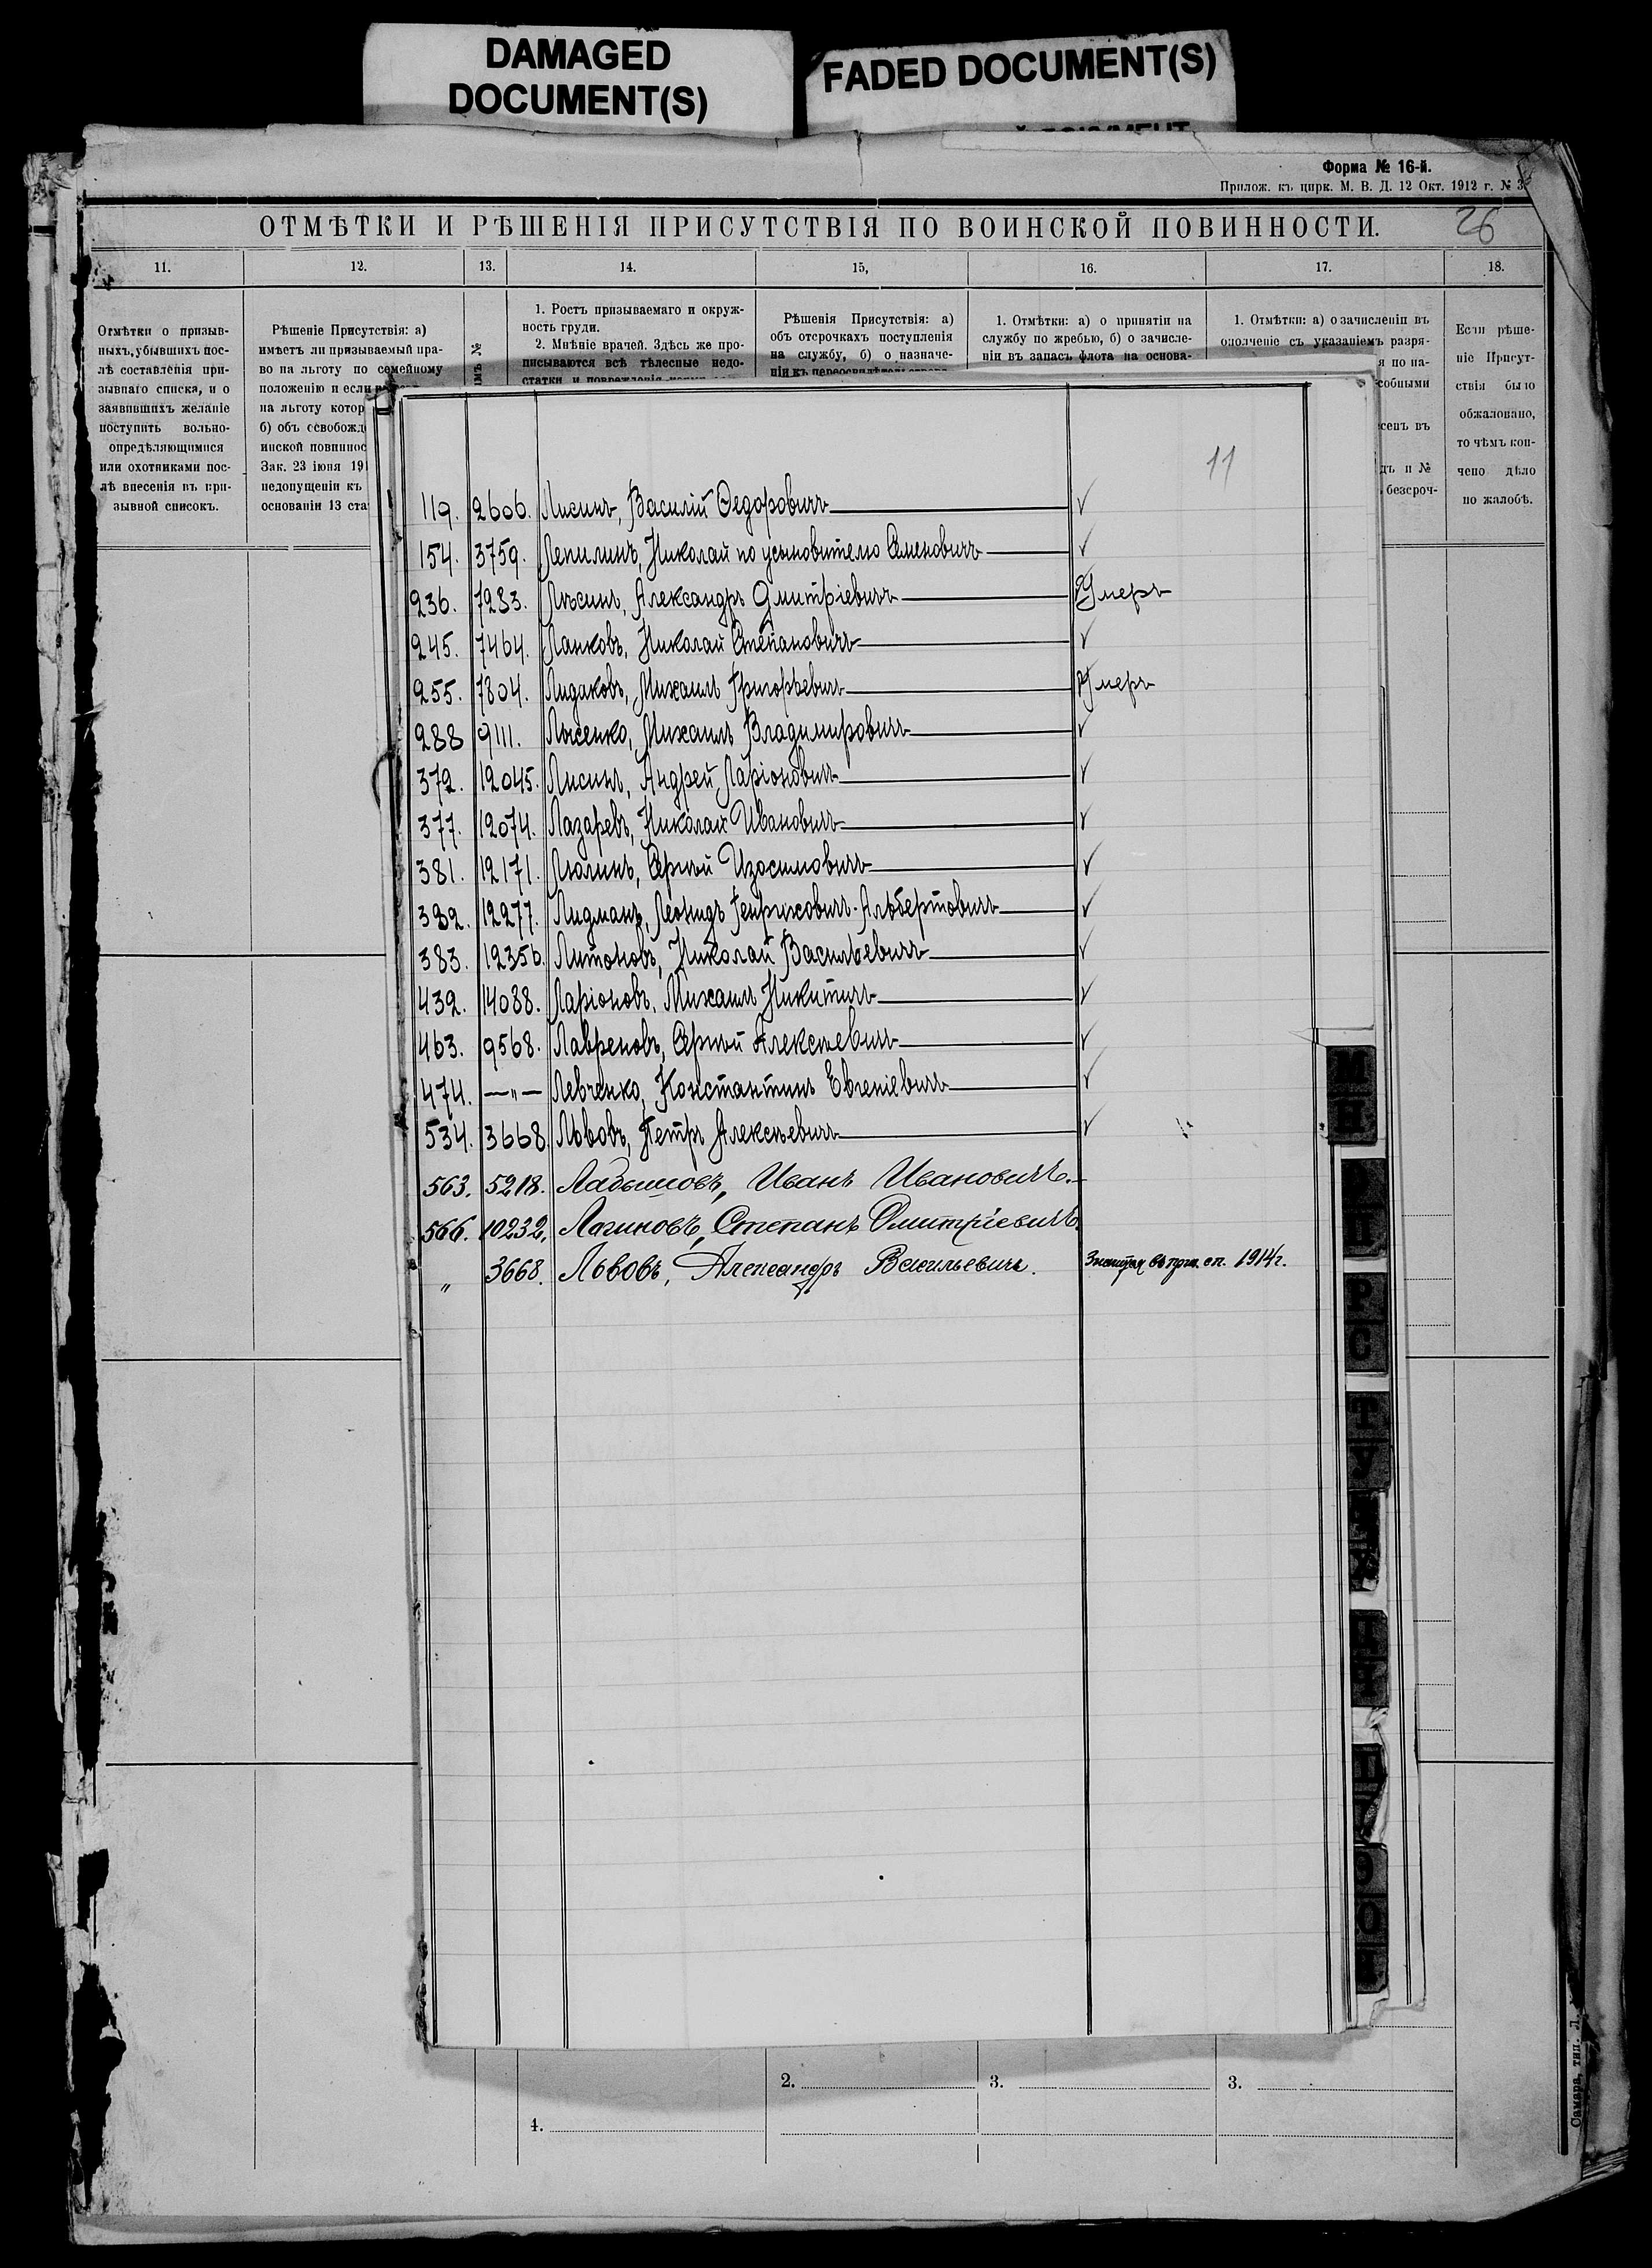 DAMAGED
DOCUMENT(S)
FADED DOCUMENT(S)
Форма № 16-й.
Прилож. къ цирк. М. В. Д. 12 Окт. 1912 г. №
26
ОТМѢТКИ И РѢШЕНІЯ ПРИСУТСТВІЯ ПО ВОИНСКОЙ ПОВИННОСТИ.
11. 12. 13. 14. 15, 16. 17. 18.
Отмѣтки о призыв-
ныхъ, убывшихъ пос-
лѣ составленія при-
зывнаго списка, и о
заявившихъ желаніе
поступить вольно-
опредѣляющимися
или охотниками пос-
лѣ внесенія въ при-
зывной списокъ.
Рѣшеніе Присутствія: а)
имѣетъ ли призываемый пра-
во на льготу по семейному
положенію и если
на льготу котор
б) объ освобожд
инской повиннос
Зак. 23 іюня 191
недопущеніи къ
основаніи 13 ста
№
1. Ростъ призываемаго и окруж-
ность груди.
2. Мнѣніе врачей. Здѣсь же про-
писываются всѣ тѣлесные недо-
статки и поврежденія
Рѣшенія Присутствія: а)
объ отсрочкахъ поступленія
на службу, б) о назначе-
ніи къ переосвидѣтельствов
1. Отмѣтки: а) о принятіи на
службу по жребью, б) о зачисле-
ніи въ запасъ флота на основа-
1. Отмѣтки: а) о зачисленіи въ
ополченіе съ указаніемъ разря-
я по на-
собными
сенъ въ
дъ и №
безсроч-
Если рѣше-
ніе Присут-
ствія было
обжаловано,
то чѣмъ кон-
чено дѣло
по жалобѣ.
11
119. 2606. Лисинъ, Василій Ѳедоровичъ ✓
154. 3759. Лепилинъ, Николай по усыновителю Семеновичъ ✓
236. 7283. Лѣсинъ, Александръ Дмитріевичъ Умеръ
245. 7464. Ланковъ, Николай Степановичъ ✓
255. 7804. Лидаковъ, Михаилъ Григорьевичъ Умеръ
288 9111. Лысенко, Михаилъ Владимировичъ ✓
372. 12045. Лисинъ, Андрей Ларіоновичъ ✓
377. 12074. Лазаревъ, Николай Ивановичъ ✓
381. 12171. Люлинъ, Сергѣй Изосимовичъ ✓
382. 12277. Лидманъ, Леонидъ Генриховичъ-Альбертовичъ ✓
383. 12356. Литоновъ, Николай Васильевичъ ✓
432. 14088. Ларіоновъ, Михаилъ Никитичъ ✓
463. 9568. Лавреновъ, Сергѣй Алексѣевичъ ✓
474. —"— Левченко, Константинъ Евгеніевичъ ✓
534. 3668. Львовъ, Петръ Алексѣевичъ ✓
563. 5218. Ладышовъ, Иванъ Ивановичъ.
566. 10232. Логиновъ, Степанъ Дмитріевичъ
" 3668. Львовъ, Александръ Васильевичъ. въ приз. сп. 1914 г.
2. 3. 3.
4.
Самара, тип. Л.